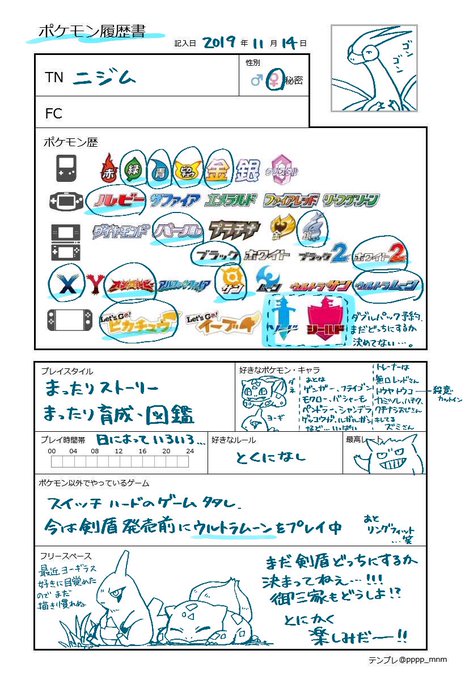 ポケモン履歴書
記入日 2019 年 11 月 14 日
ゴン
ゴン
TN ニジム
性別
♂ ♀ 秘密
FC
ポケモン歴
赤 緑 青 ピカチュウ 金 銀 クリスタル
ルビー サファイア エメラルド ファイアレッド リーフグリーン
ダイヤモンド パール プラチナ
ブラック ホワイト ブラック2 ホワイト2
X Y オメガルビー アルファサファイア サン ムーン ウルトラサン ウルトラムーン
Let's Go! ピカチュウ Let's Go! イーブイ ソード シールド
ダブルパック予約、
まだどっちにするか
決めてない…。
プレイスタイル
まったりストーリー
まったり育成、図鑑
好きなポケモン・キャラ
ダネ
ヨーギ
あとは
ゲンガー、フライゴン
モクロー、バシャーモ
ペンドラー、シャンデラ
ゲッコウガ、ルガルガン
など…いっぱい
トレーナーは
無口レッドさん
トウヤ・トウコ
カミツレ、ハチク、
クチナシおじさん
ズミさん
殺意
カットイン
プレイ時間帯 日によっていろいろ…
00 04 08 12 16 20 24
好きなルール
とくになし
最高レート
ポケモン以外でやっているゲーム
スイッチ ハードのゲーム タタし、
今は剣盾発売前にウルトラムーンをプレイ中
あと
リングフィット
…笑
フリースペース
最近ヨーギラス
好きに目覚めた
のでまだ
描き慣れぬ。
まだ剣盾どっちにするか
決まってねぇ…!!!
御三家もどうしよ!?
とにかく
楽しみだーー!!
テンプレ@pppp_mnm